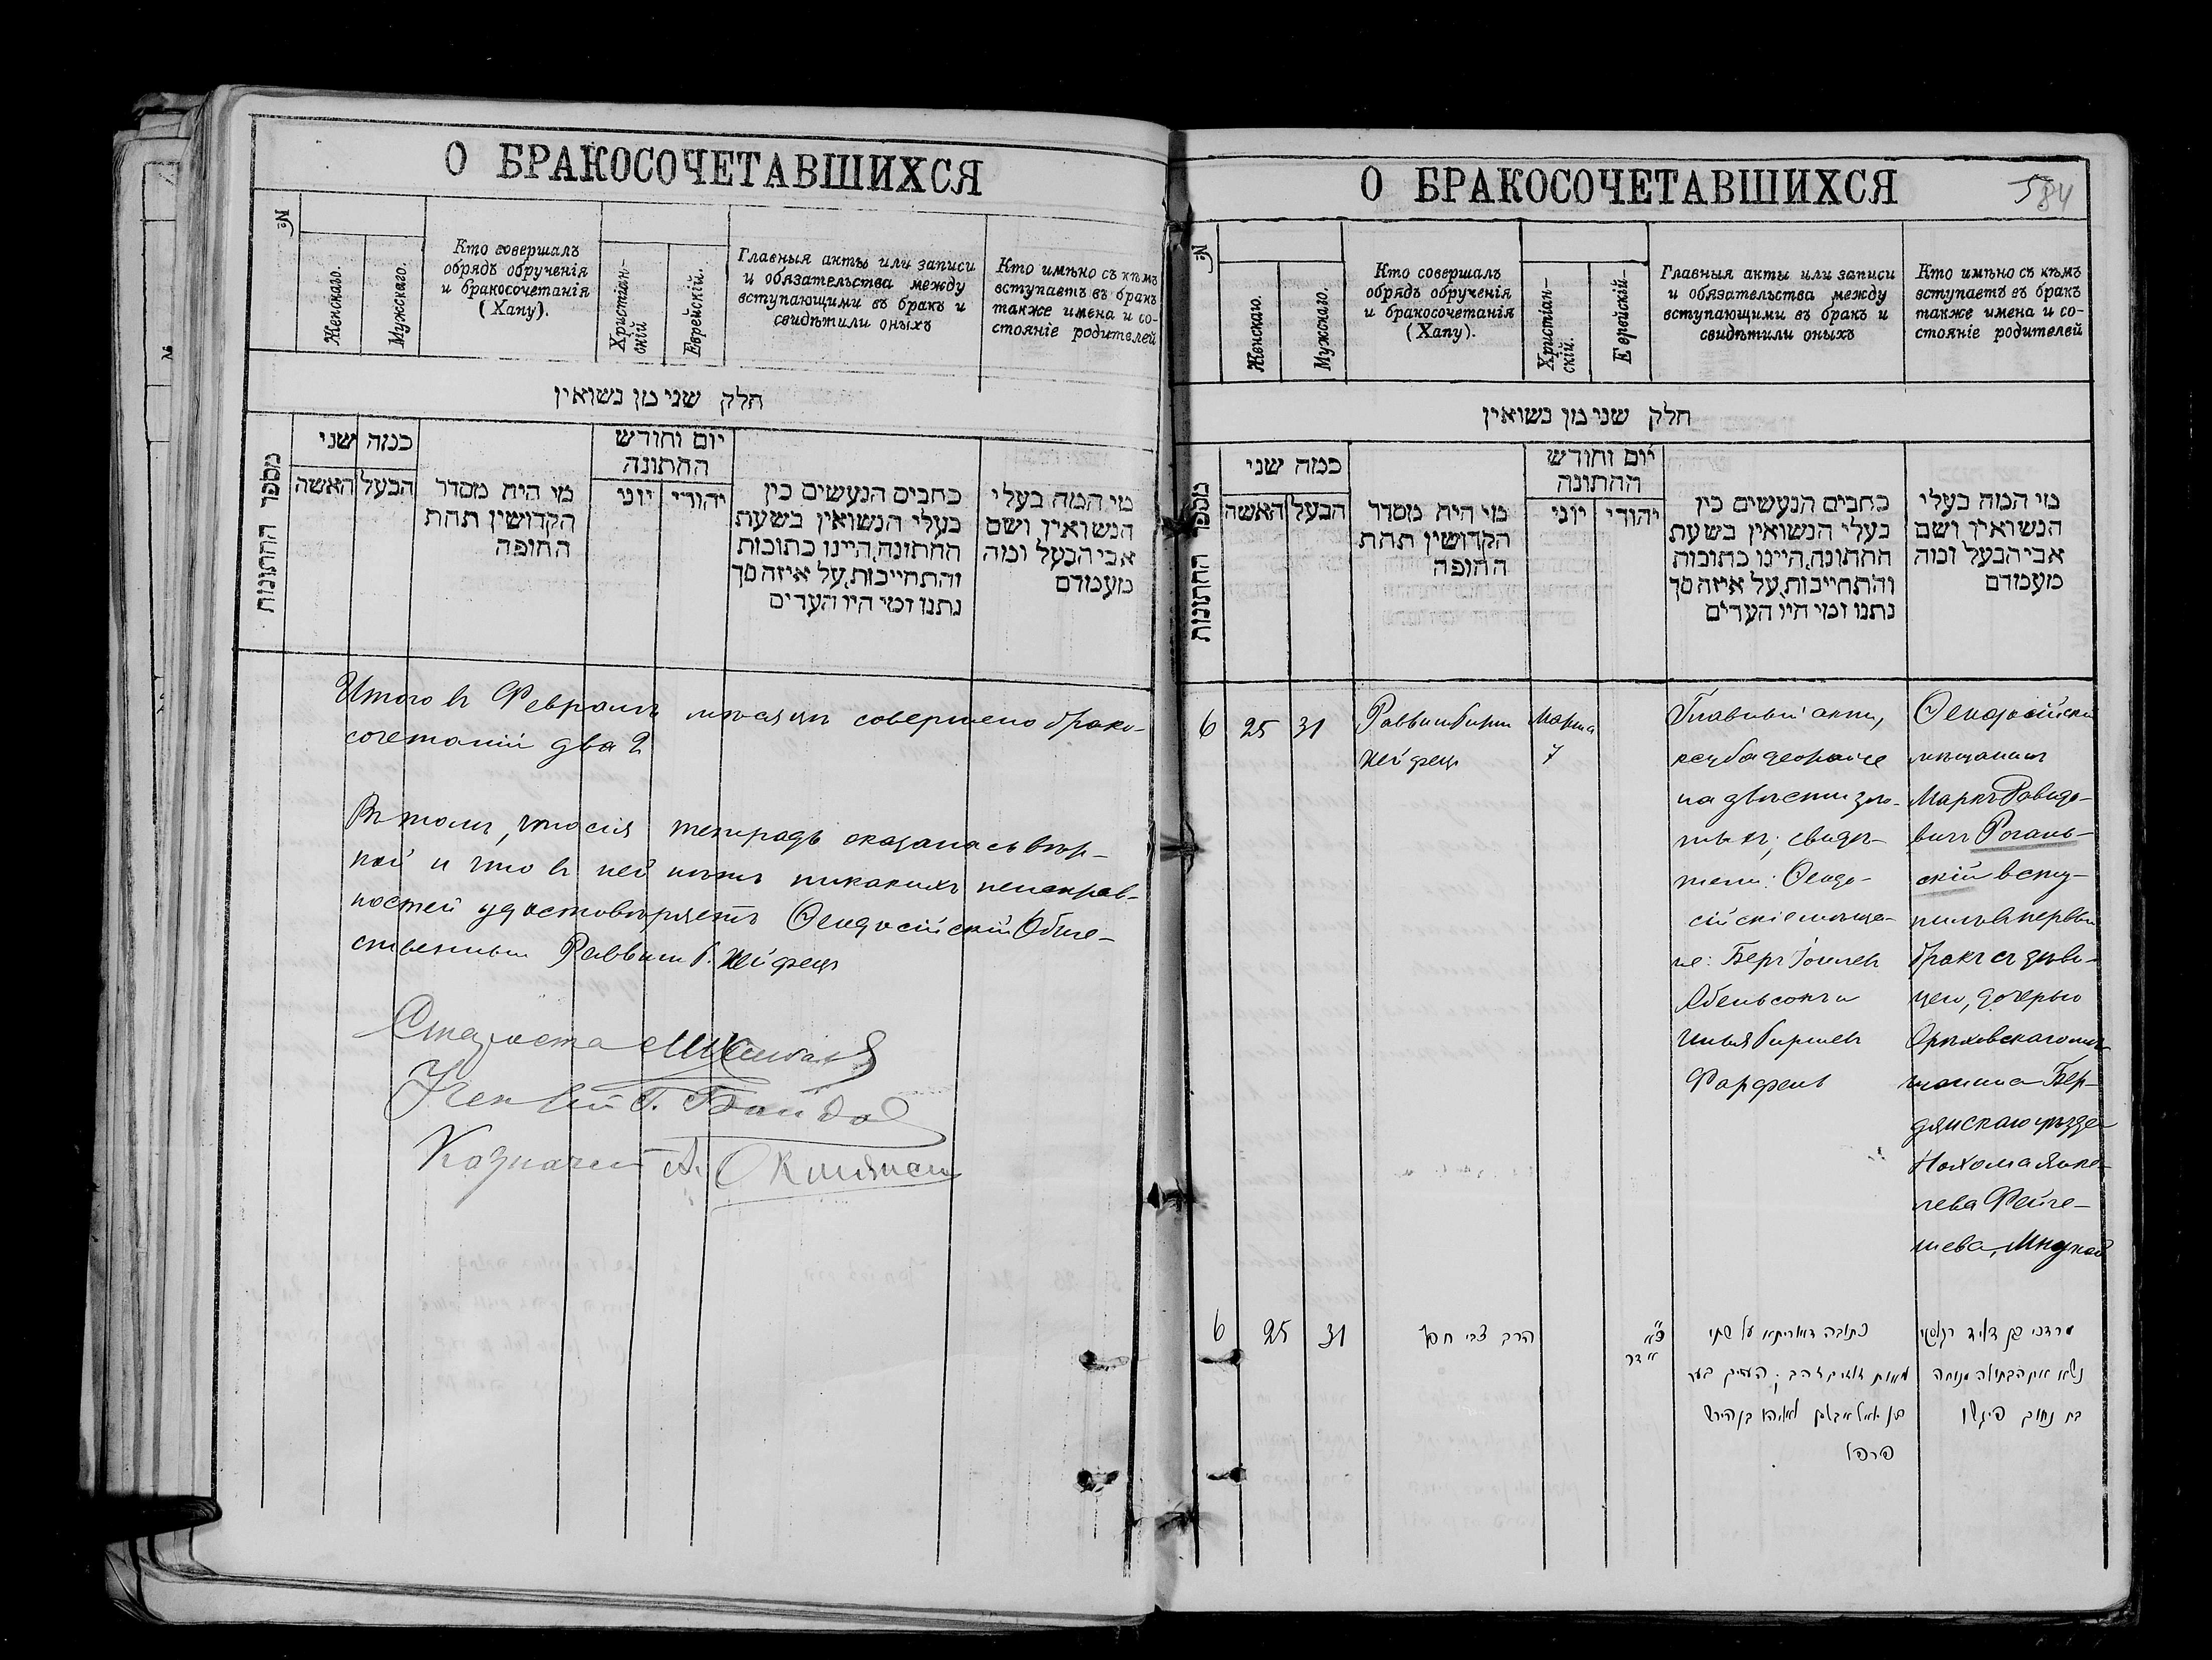 О БРАКОСОЧЕТАВШИХСЯ
№
Женскаго.
Мужскаго.
Кто совершалъ
обрядъ обрученія
и бракосочетанія
(Хапу).
Христіан-
скій
Еврейскій.
Главныя акты или записи
и обязательства между
вступающими въ бракъ и
свидѣтили оныхъ
Кто имѣно съ кѣмъ
вступаетъ въ бракъ
также имена и со-
стояніе родителей
חלק שני מן נשואין
מספר החתונות
כמה שני
האשה
הבעל
מי היה מסדר
הקדושין תחת
החופה
יום וחודש
החתונה
יוני
יהודי
כתבים הנעשים בין
בעלי הנשואין בשעת
החתונה, היינו כתובות
והתחייבות, על איזה סך
נתנו ומי היו העדים
מי המה בעלי
הנשואין ושם
אבי הבעל ומה
מעמדם
Итого въ Февралѣ мѣсяцѣ совершено брако-
сочетаній два 2
Въ томъ, что сія тетрадь оказалась вѣр-
ной и что въ ней нѣтъ никакихъ неисправ-
ностей удостовѣряетъ Ѳеодосійскій Обще-
ственный Раввинъ Б. Хейфецъ
Староста
Ученый Г.
Казначей А.
О БРАКОСОЧЕТАВШИХСЯ
584
№
Женскаго.
Мужскаго.
Кто совершалъ
обрядъ обрученія
и бракосочетанія
(Хапу).
Христіан-
скій.
Еврейскій-
Главныя акты или записи
и обязательства между
вступающими въ бракъ и
свидѣтили оныхъ
Кто имѣно съ кѣмъ
вступаетъ въ бракъ
также имена и со-
стояніе родителей
חלק שני מן נשואין
מספר החתונות
כמה שני
האשה
הבעל
מי היה מסדר
הקדושין תחת
החופה
יום וחודש
החתונה
יוני
יהודי
כתבים הנעשים בין
בעלי הנשואין בשעת
החתונה, היינו כתובות
והתחייבות, על איזה סך
נתנו ומי היו העדים
מי המה בעלי
הנשואין ושם
אבי הבעל ומה
מעמדם
6 25 31
Раввинъ Гирш
Хейфецъ
Марта
7
Главный актъ,
кесуба деорайсе
на двѣсти зло-
тыхъ; свидѣ-
тели: Ѳеодо-
сійскіе мѣща-
не: Беръ Іоилев
Абельсонъ и
Илья Гиршев
Фарфель
Ѳеодосійскій
мѣщанинъ
Маркъ Давидо-
вичъ Рогань-
скій всту-
пилъ въ первый
бракъ съ дѣви-
цею, дочерью
Орѣховскаго мѣ-
щанина Бер-
дянскаго уѣзда
Нахома Янке-
лева Фейге-
лева, Мнухой
6 25 31
הרב צבי חפץ
כ״א
אדר
כתובה דאוריתא על שתי
מאות זהב ; העדים בער
בן יואל אבלסן ואליהו בן הירש
פרפל
מרדכי בן דוד
נשא את הבתולה מנוחה
בת נחום